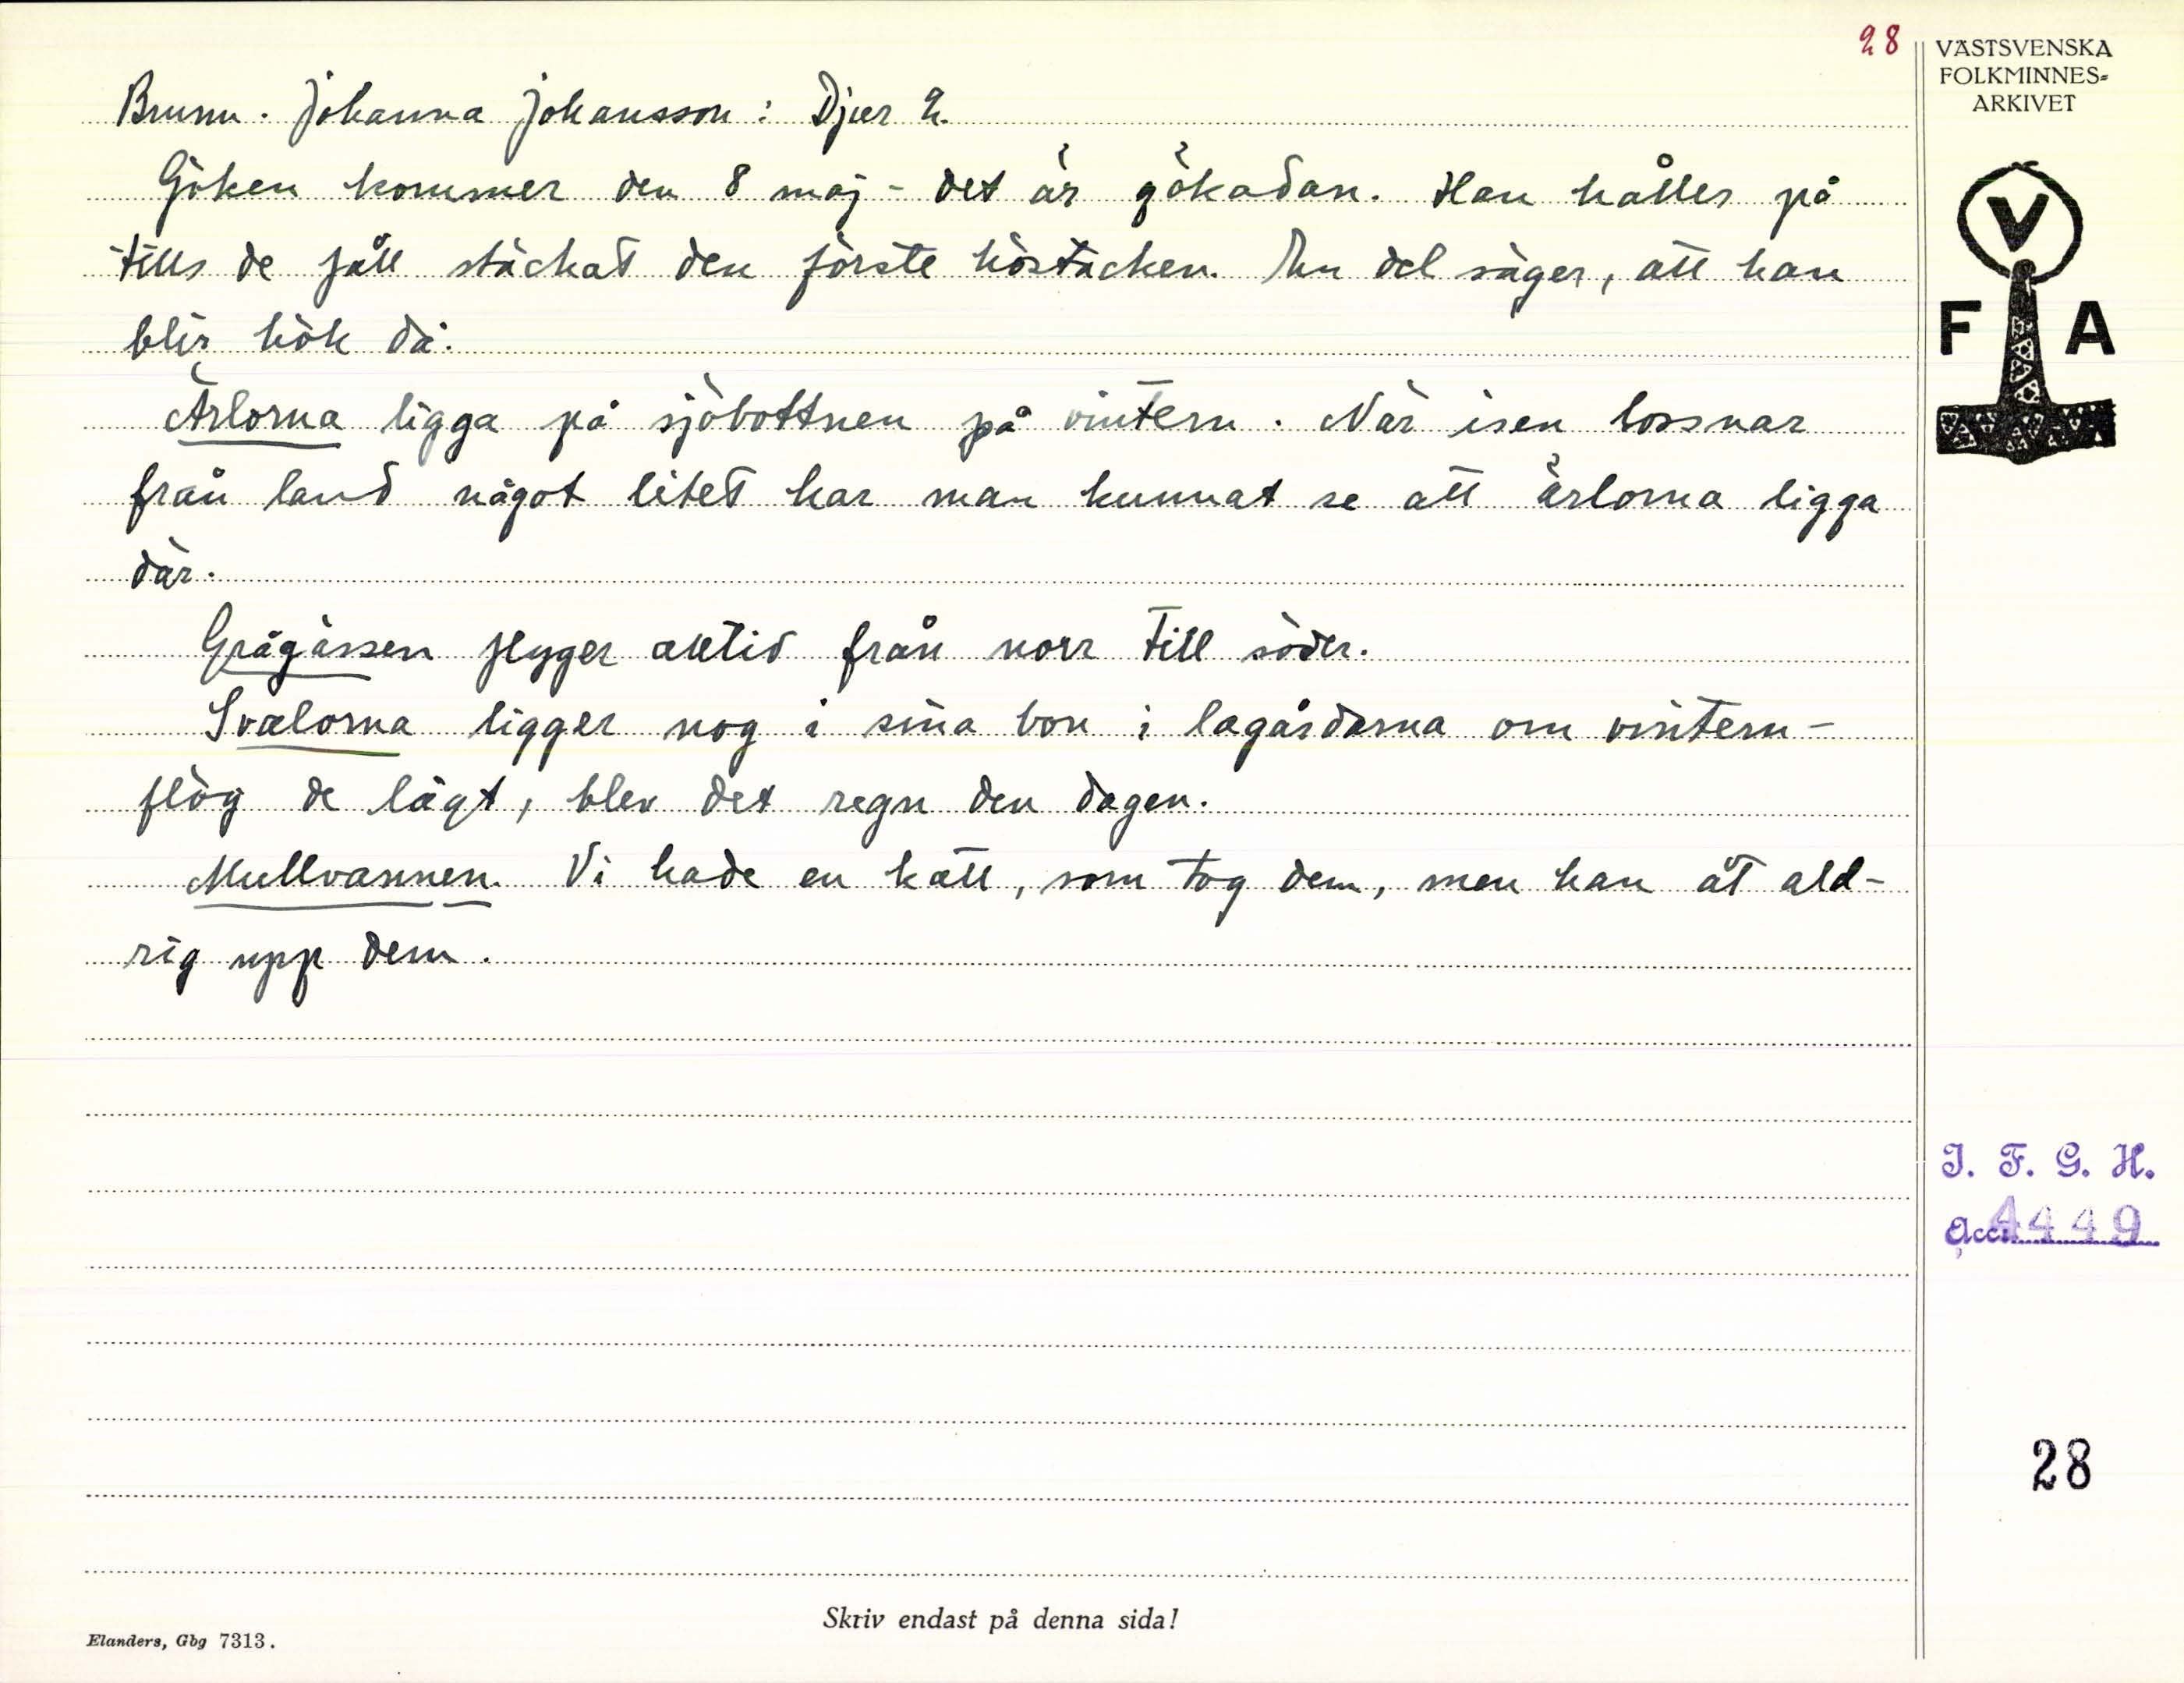 28
VÄSTSVENSKA
FOLKMINNES=
ARKIVET
Brunn. Johanna Johansson: Djur 2.
Göken kommer den 8 maj - det är gökadan. Han håller på
tills de fått stackat den förste höstacken. En del säger, att han
blir hök då.
Ärlorna ligga på sjöbottnen på vintern. När isen lossnar
från land något litet har man kunnat se att ärlorna ligga
där.
Grågässen flyger alltid från norr till söder.
Svalorna ligger nog i sina bon i lagårdarna om vintern -
flög de lågt, blev det regn den dagen.
Mullvannen. Vi hade en katt, som tog dem, men han åt ald-
rig upp dem.
V
F A
I. F. G. H.
Acc. 4449
28
Skriv endast på denna sida!
Elanders, Gbg 7313.